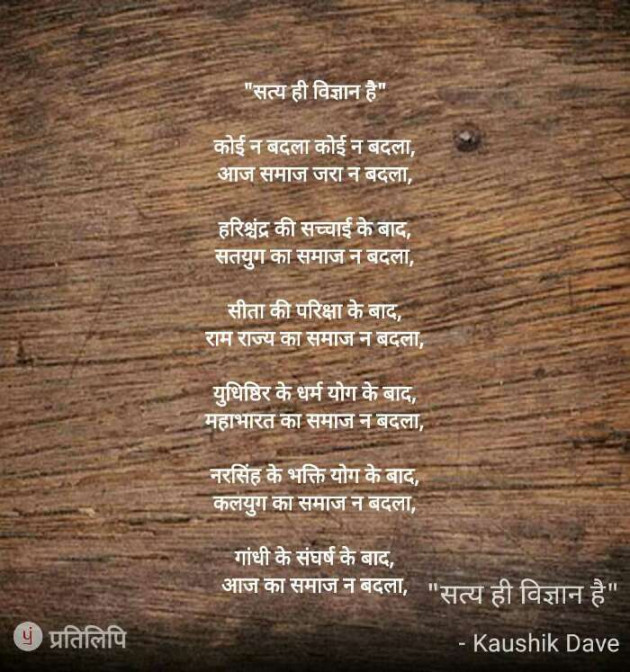 "सत्य ही विज्ञान है"
कोई न बदला कोई न बदला,
आज समाज जरा न बदला,
हरिश्चंद्र की सच्चाई के बाद,
सतयुग का समाज न बदला,
सीता की परिक्षा के बाद,
राम राज्य का समाज न बदला,
युधिष्ठिर के धर्म योग के बाद,
महाभारत का समाज न बदला,
नरसिंह के भक्ति योग के बाद,
कलयुग का समाज न बदला,
गांधी के संघर्ष के बाद,
आज का समाज न बदला,
"सत्य ही विज्ञान है"
प्रतिलिपि
- Kaushik Dave